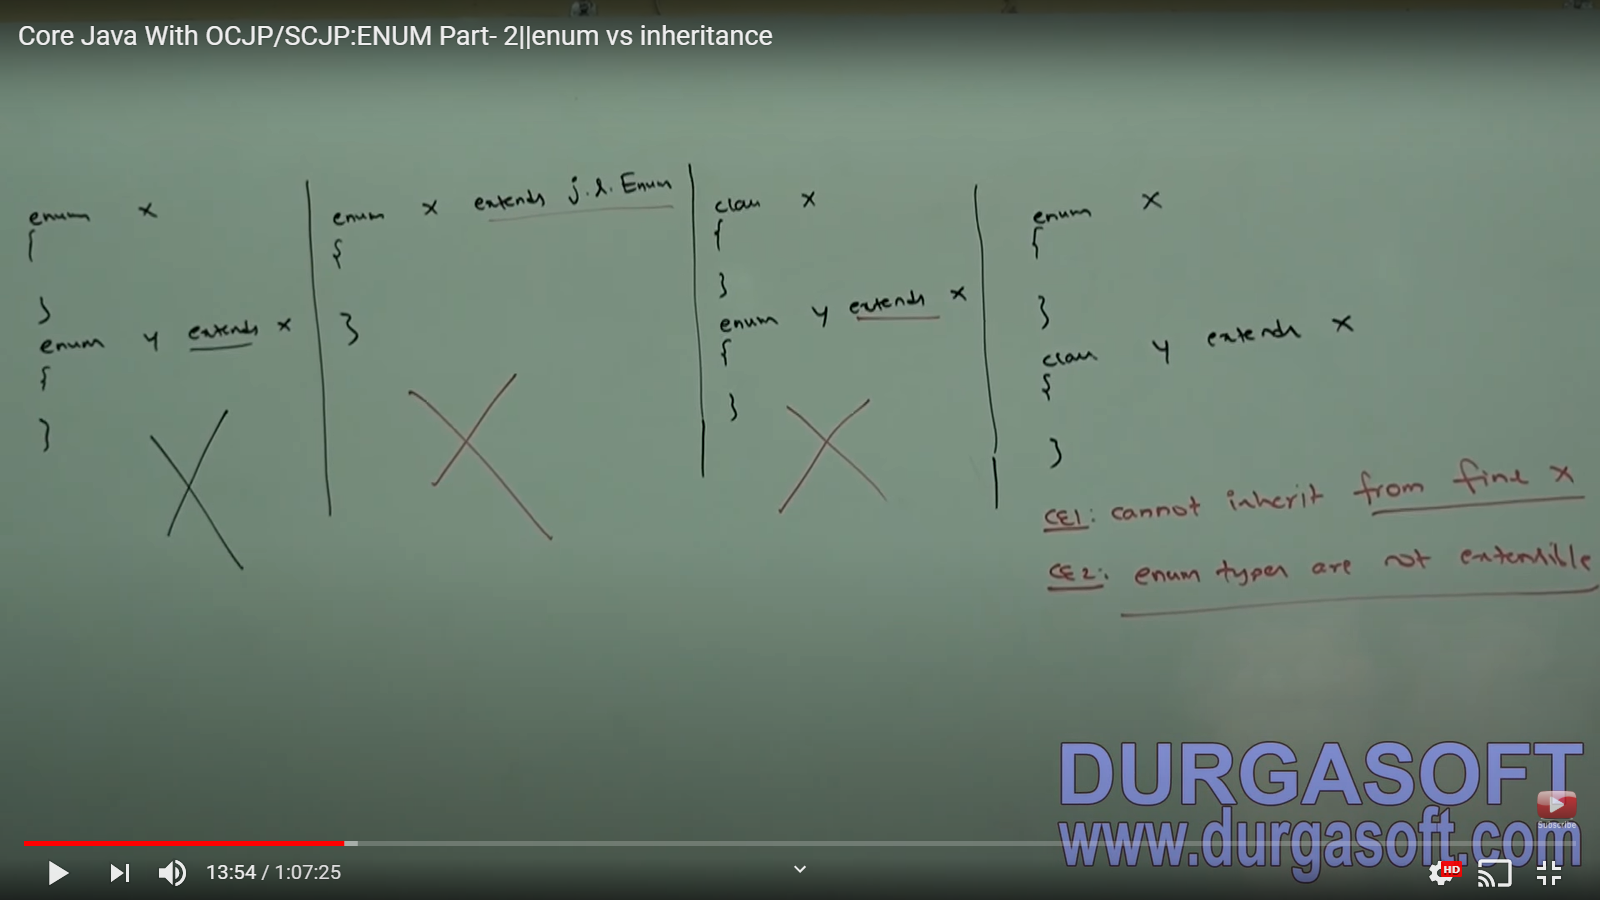 Core Java With OCJP/SCJP:ENUM Part- 2||enum vs inheritance
enum x
{
}
enum y extends x
{
}
enum x extends j.l.Enum
{
}
class x
{
}
enum y extends x
{
}
enum x
{
}
class y extends x
{
}
CE1: cannot inherit from final x
CE2: enum types are not extensible
DURGASOFT
www.durgasoft.com
Subscribe
13:54 / 1:07:25
HD